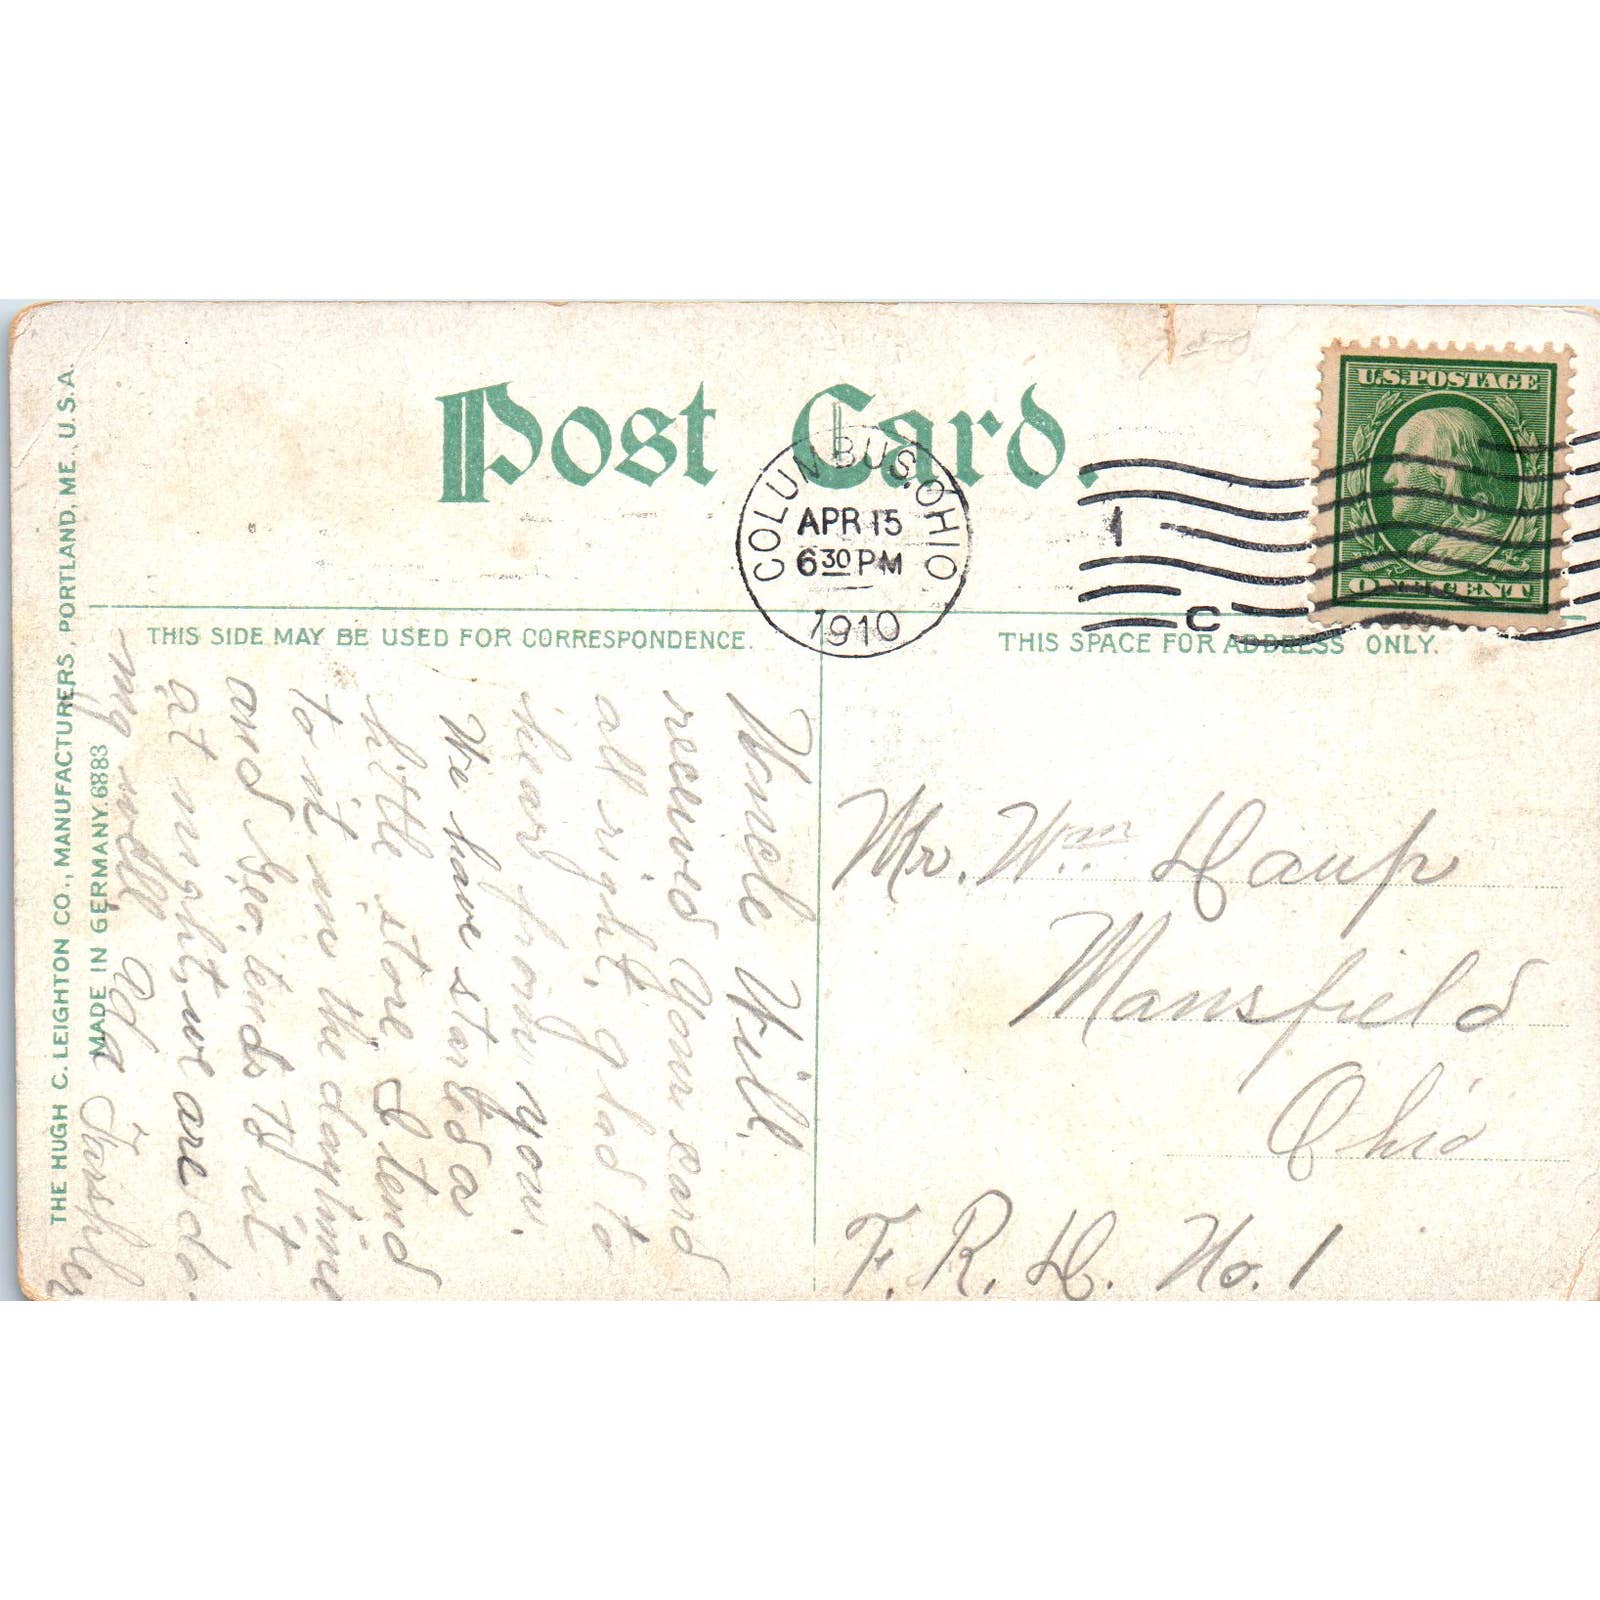 Post Card.
COLUMBUS, OHIO
APR 15
6 30 PM
1910
1
C
U.S. POSTAGE
ONE CENT
THIS SIDE MAY BE USED FOR CORRESPONDENCE.
THIS SPACE FOR ADDRESS ONLY.
THE HUGH C. LEIGHTON CO., MANUFACTURERS, PORTLAND, ME., U.S.A.
MADE IN GERMANY. 6883
Uncle Will.
received your card
all right, glad to
hear from you.
We have started a
little store I tend
to it in the daytime
and Geo. tends to it
at night, we are do
ing well Ada
Mr. Wm. Haup
Mansfield
Ohio
F. R. D. No. 1